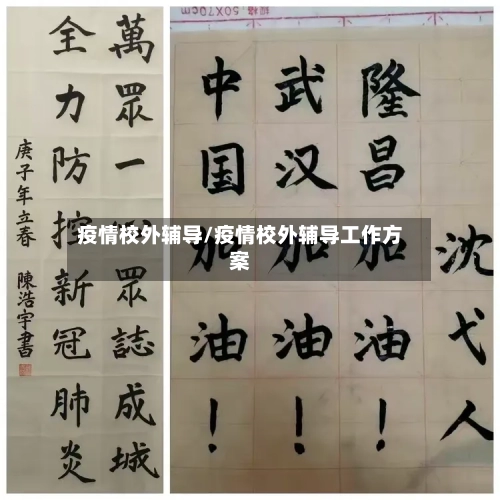 萬眾一心眾誌成城
全力防控新冠肺炎
庚子年立春 陳浩宇書
50X70cm
隆昌加油!
武汉加油!
中国加油!
沈弋人
疫情校外辅导/疫情校外辅导工作方
案